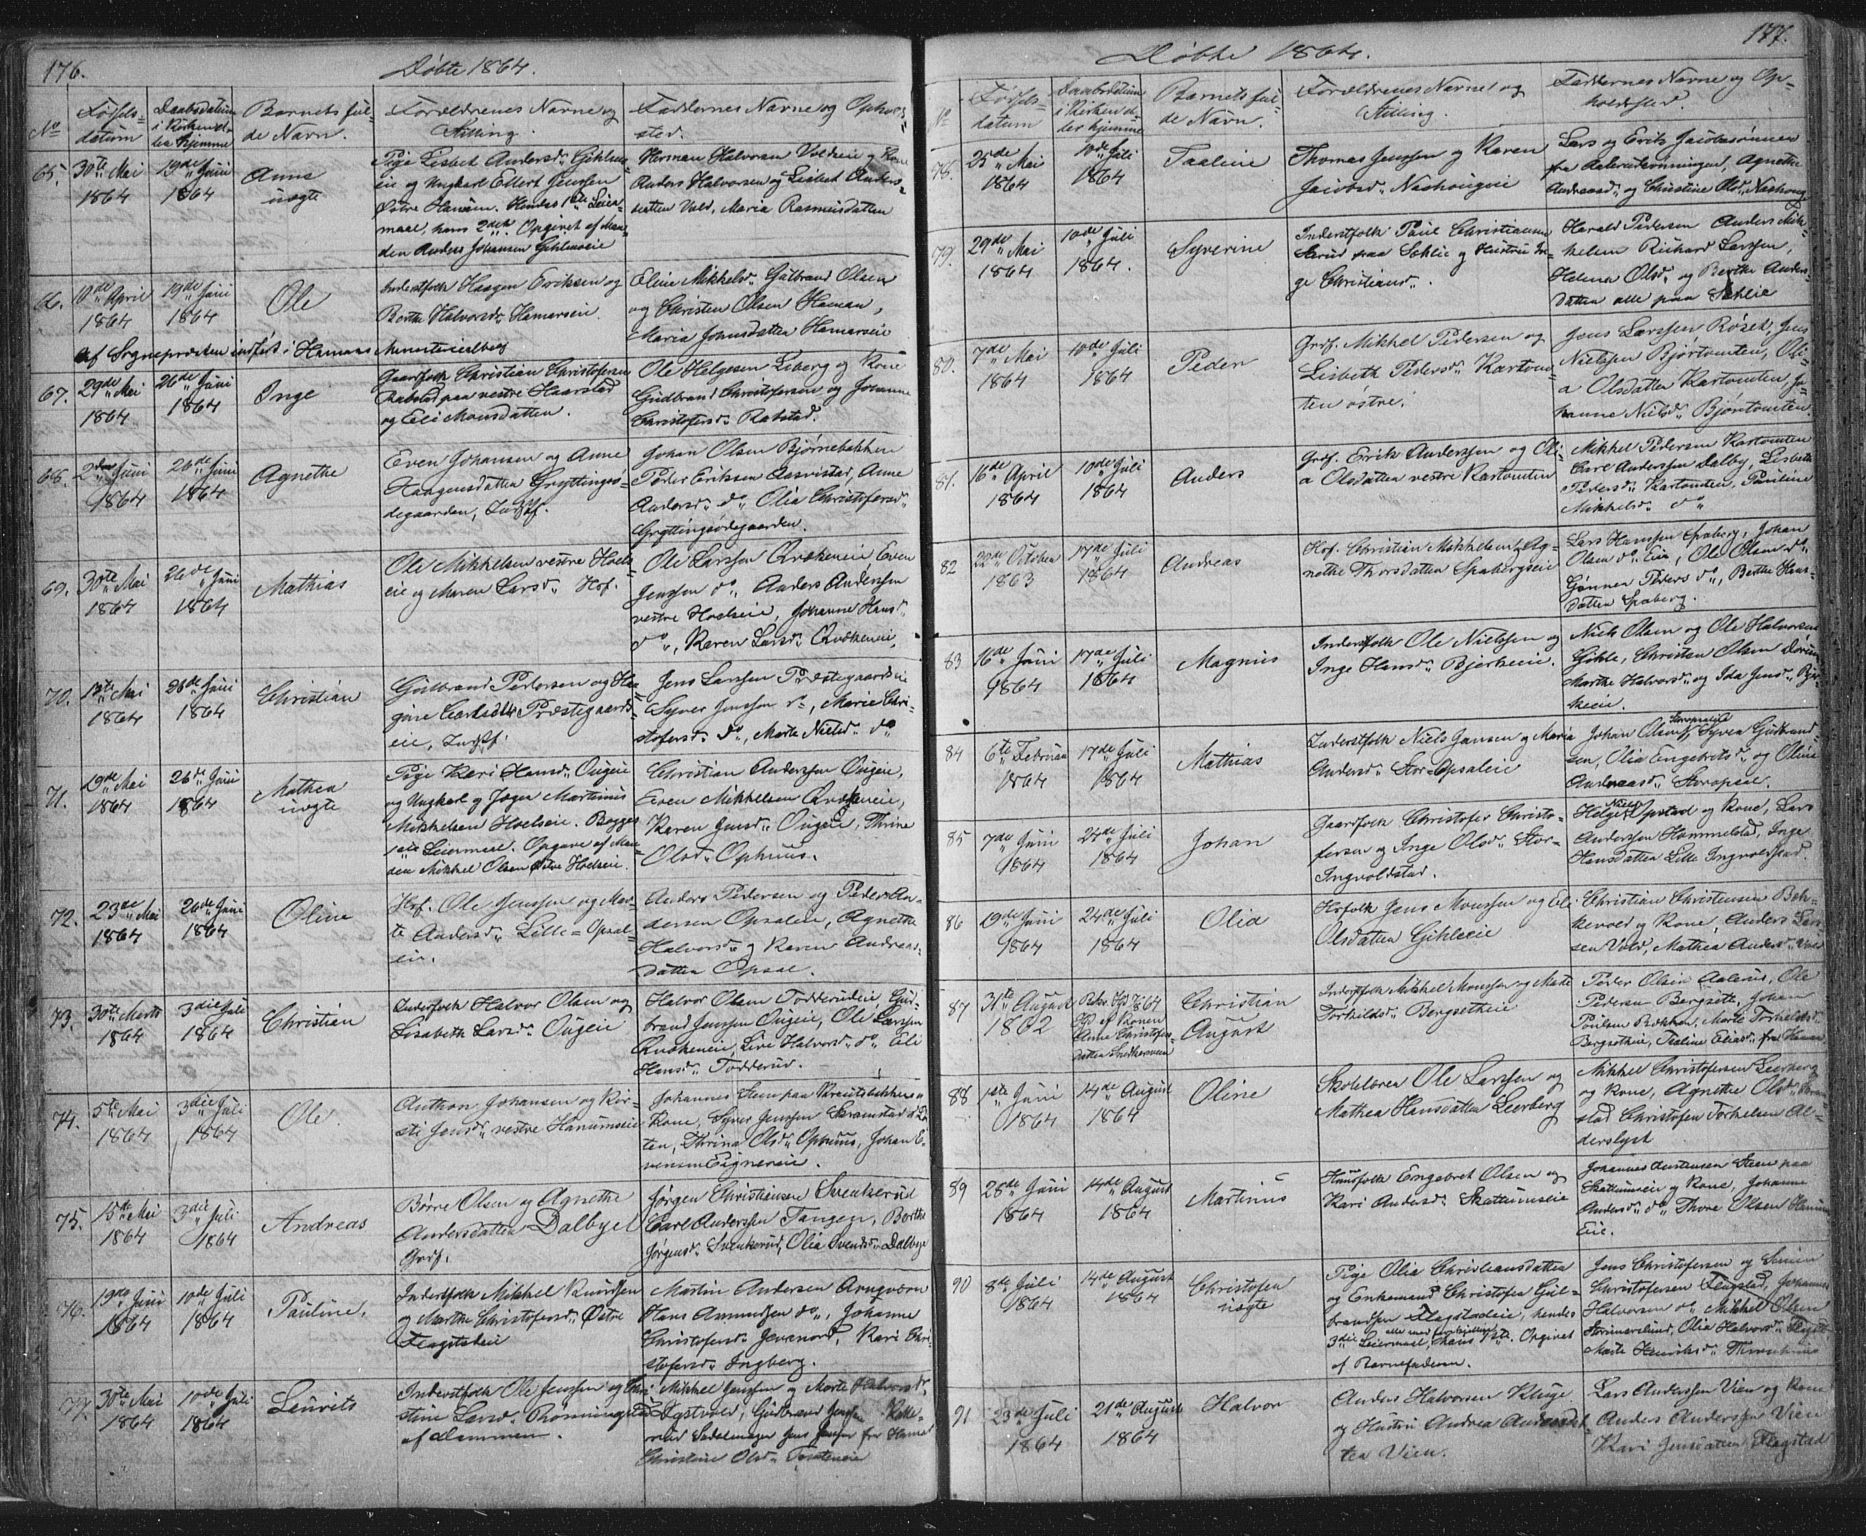 176.
Døbte 1864.
No
Fødsels-
datum
Daabsdatum
i Kirken el-
ler hjemme
Barnets ful-
de Navn.
Forældrenes Navne og
Stilling.
Faddernes Navne og Opholds-
sted.
65.
30te Mai
1864
19de Juni
1864
Anne
uægte
Pige Lisbet Andersd. Gihlus-
eie og Ungkarl Ellert Jenssen
Østre Hanum. Hendes 1ste Leier-
maal, hans 2det. Opgivet af Man-
den Anders Johansen Gihluseie
Herman Halvorsen Voldeie og Kone
Anders Halvorsen og Lisbet Anders-
datten Vold, Maria Rasmusdatten
66.
10de April
1864
19de Juni
1864
Ole
Inderstfolk Haagen Eriksen og
Berthe Halvorsd. Hamarseie.
Eline Mikkelsd. Gulbrand Olsen
og Christen Olsen Haman,
Maria Johnsdatten Hamarseie
af Sognepræsten indført i Hamars Ministerialbog
67.
29de Mai
1864
26de Juni
1864
Inge
Gaardfolk Christian Christofersen
Rabstad paa vestre Haarstad
og Eli Monsdatten.
Ole Helgesen Leberg og Kone
Gudbrand Christofersen og Johanne
Christofersd. Rabstad.
68.
2den Juni
1864
26de Juni
1864
Agnethe
Even Johansen og Anne
Haagensdatten Gryttingsø-
degaarden, Indsf.
Johan Olsen Bjørnebakken
Peder Eriksen Aasvistad, Anne
Andersd. do, Olia Christofersd.
Gryttingsødegaarden.
69.
30te Mai
1864
26de Juni
1864
Mathias
Ole Mikkelsen vestre Hoels-
eie og Maren Larsd. Hof.
Ole Larssen Kvækeneie, Even
Jenssen do, Anders Andersen
vestre Hoelseie, Johanne Hansd.
do, Karen Larsd. Kvækeneie,
70.
13te Mai
1864
26de Juni
1864
Christian
Gulbrand Pedersen og
Præstegaards-
eie, Indsf.
Jens Larssen Præstegaardseie
Syver Jenssen do, Marie Chri-
stofersd. do, Marte Nielsd. do
71.
19de Mai
1864
26de Juni
1864
Mathea
uægte
Pige Kari Hansd. Ougeie
og Ungkarl og Jæger Martinus
Mikkelsen Hoelseie. Begges
1ste Leiermaal. Opgave af Man-
den Mikkel Olsen Østre Hoelseie.
Christian Anderssen Ougeie,
Even Mikkelsen Kvækeneie,
Karen Jensd. Ougeie, Thrine
Olsd. Ophuus.
72.
23de Mai
1864
26de Juni
1864
Oline
Hof. Ole Jenssen og Mar-
te Andersd. Lille-Opsal-
eie.
Anders Pedersen og Peder An-
dersen Opsaleie, Agnethe
Halvorsd. og Karen Andreas-
datten Opsal.
73.
30te Marts
1864
3die Juli
1864
Christian
Inderstfolk Halvor Olsen og
Lisabeth Larsd. Ougeie
Halvor Olsen Todderudeie, Gul-
brand Jenssen Ougeie, Ole Larssen
Kvækeneie, Live Halvorsd. do Eli
Hansd. Todderud.
74.
5te Mai
1864
3die Juli
1864
Ole.
Anthon Johansen og Kir-
sti Jensd. vestre Hanumseie
Johannes Steen paa Kveitebakken
Kone, Syver Jenssen Skramstad
ten, Thrina Olsd. Ophuus, Johan E-
vensen Eignereie.
75.
15de Mai
1864
3die Juli
1864
Andreas
Børre Olsen og Agnethe
Andersdatten Dalbyel
Grdf.
Jørgen Christiansen Svenkerud
Carl Anderssen Tangen, Berthe
Jørgensd. Svenkerud, Olia Svendsd. Dalbye
76.
19de Juni
1864
10de Juli
1864
Pauline.
Inderstfolk Mikkel Knudssen
og Marthe Christofersd. Østre
Flagstadeie
Martin Andersen Arnqværn
Hans Asmundsen do, Johanne
Christofersd. Jevanord, Kari Chri-
stofersd. Ingberg.
77.
30te Mai
1864
10de Juli
1864
Laurits
Inderstfolk Ole Jenssen og Chri-
stine Larsd. Rønningstad
af Lammen.
Mikkel Jenssen og Marte Halvorsd.
Agstvold, Gulbrand Jenssen
rud Sadelmager Jens Jenssen fra Hamar
Christine Olsd. Tomteneie
177.
Døbte 1864.
No
Fødsels-
datum
Daabsdatum
i Kirken el-
ler hjemme
Barnets ful-
de Navn.
Forældrenes Navne og
Stilling.
Faddernes Navne og Op-
holdssted.
78.
25de Mai
1864
10de Juli
1864
Taaline
Thomas Jenssen og Karen
Jacobsd. Nashougeie
Lars og Eriks Jacobsønnen
fra Halvorskonningen, Agnethe
Andreasd. og Christine Olsd. Nashoug
79.
29de Mai
1864
10de Juli
1864.
Syverine
Inderstfolk Poul Christiansen
Sarud paa Sehlie og Hustru In-
ge Christiansd.
Harald Pedersen Anders Mik-
kelsen Richard Larssen,
Helena Olsd. og Berthe Anders-
datten alle paa Sehlie
80.
7de Mai
1864
10de Juli
1864
Peder
Grdf. Mikkel Pedersen og
Lisbeth Pedersd. Kartom-
ten østre.
Jens Larssen Røset, Jens
Nielssen Bjørtomten, Oli-
a Olsdatten Kartomten, Jo-
hanne Nielsd. Bjørtomten
81.
16de April
1864
10de Juli
1864
Anders
Grdf. Erik Anderssen og Oli-
a Olsdatten vestre Kartomten
Mikkel Pedersen Kartomten
Carl Anderssen Dalby, Lisbeth
Pedersd. Kartomten, Pauline
Mikkelsd. do
82
22de October
1863
17de Juli
1864
Andreas
Hof. Christian Mikkelsen & Ag-
nethe Thorsdatten Spabergseie
Lars Hanssen Spaberg, Johan
Olsen do Eie, Ole Olsen do
Gunner Peders do, Berthe Hans-
datten Spaberg.
83
16de Juni
1864
17de Juli
1864
Magnus
Inderstfolk Ole Nielssen og
Inge Hansd. Bjerkeeie.
Niels Olsen og Ole Halvorsen
Gihle, Christen Olsen
Marthe Halvorsd. og Ida Jensd. Bjer-
keeie.
84
6te Februar
1864
17de Juli
1864
Mathias
Inderstfolk Niels Jansen og Maria
Andersd. Stor-Opsaleie
Johan Olsen Storopsaleie, Syver Gulbrand-
sen, Olia Engebretsd. og Oline
Andreasd. Storopsal.
85
7de Juni
1864
24de Juli
1864
Johan
Gaardfolk Christofer Christo-
fersen og Inge Olsd. Stor-
Ingvoldstad.
Holger Nielsen Opstad og Kone, Lars
Anderssen Hommelstad, Inge
Hansdatten Lille Ingvoldstad.
86
19de Juni
1864
24de Juli
1864
Olia
Hosfolk Jens Monssen og Eli
Olsdatten Gihleeie
Christian Christensen Bek-
kevold og Kone, Anders Lars-
sen Vold, Mathea Andersd. Vold
87
31te August
1862
Christian
August
Inderstfolk Mikkel Monssen og Marte
Torkildsd. Bergsetheie
Peder Olsen Aalerus, Ole
Pedersen Bergseth, Johan
Poulsen Bækken, Marte Torkildsd.
Bergsetheie, Taaline Eliasd. fra Hamar
88
1ste Juni
1864
14de August
1864
Oline
Skolelærer Ole Larssen og
Mathea Hansdatten Leerberg
Mikkel Christofersen Leerberg
og Kone, Agnethe Olsd.
stad Christofer Torkelsen Al-
derslyst
89
28de Juni
1864
14de August
1864
Martinus
Huusfolk Engebret Olsen og
Kari Andersd. Skattumseie
Johannes Austensen Steen paa
Skattumseie og Kone, Johanne
Andersd. do Thore Olsen Hanum
Eie.
90
8de Juli
1864
14de August
1864
Christofer
uægte
Pige Olia Christiansdatten
og Enkemand Christofer Gul-
brandsen Flagstadeie, hendes
3die Leiermaal, alle med forskjellige, hans 1ste. Opgivet
af Barnefaderen.
Jens Christofersen og Simen
Christofersen Flagstad, Johannes
Halvorsen do, Mikkel Olsen
Olia Halvorsd. Flagstad
Marte Henriksd.
91
23de Juli
1864
21de August
1864
Halvor
Anders Halvorsen Kluge
og Hustru Andrea Andersdat-
ten Vien.
Lars Anderssen Vien og Kone
Anders Anderssen Vien
Kari Jensdatten Flagstad